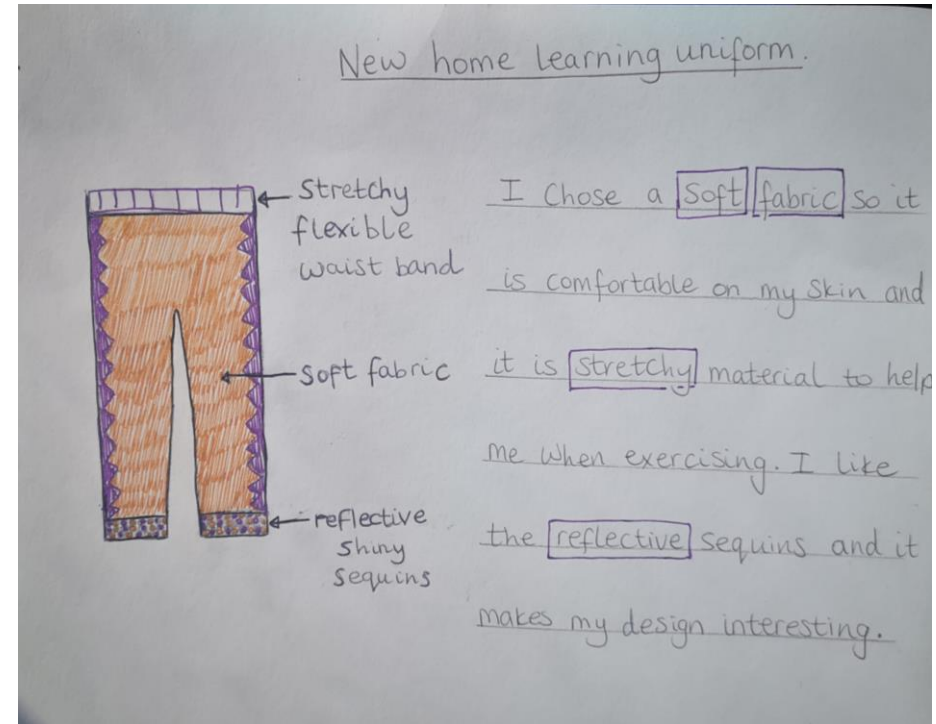 New home learning uniform.
Stretchy
flexible
waist band
soft fabric
reflective
shiny
sequins
I chose a soft fabric so it
is comfortable on my skin and
it is stretchy material to help
me when exercising. I like
the reflective sequins and it
makes my design interesting.